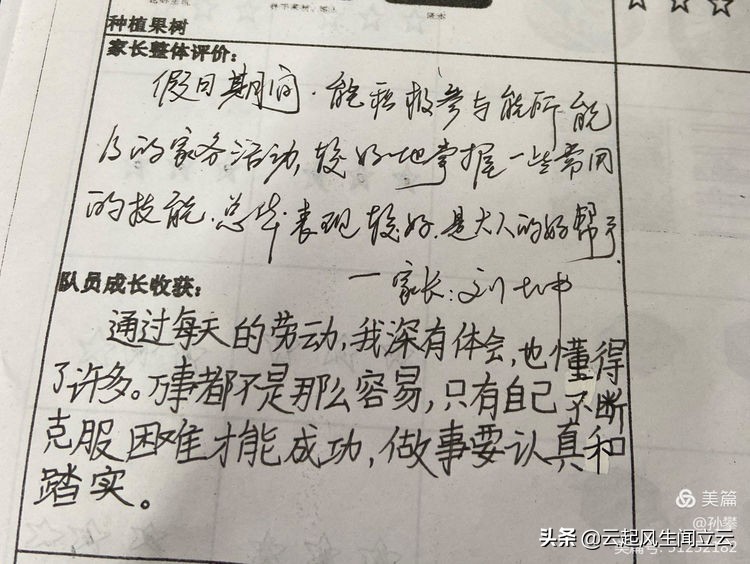 种植果树
家长整体评价：
假日期间，能积极参与能所能
及的家务活动，较好地掌握一些常用
的技能，总体表现较好，是大人的好帮手
一家长：刘
队员成长收获：
通过每天的劳动，我深有体会，也懂得
了许多。万事都不是那么容易，只有自己不断
克服困难才能成功，做事要认真和
踏实。
美篇
@孙攀
美篇号：51252182
头条 @云起风生闻立云